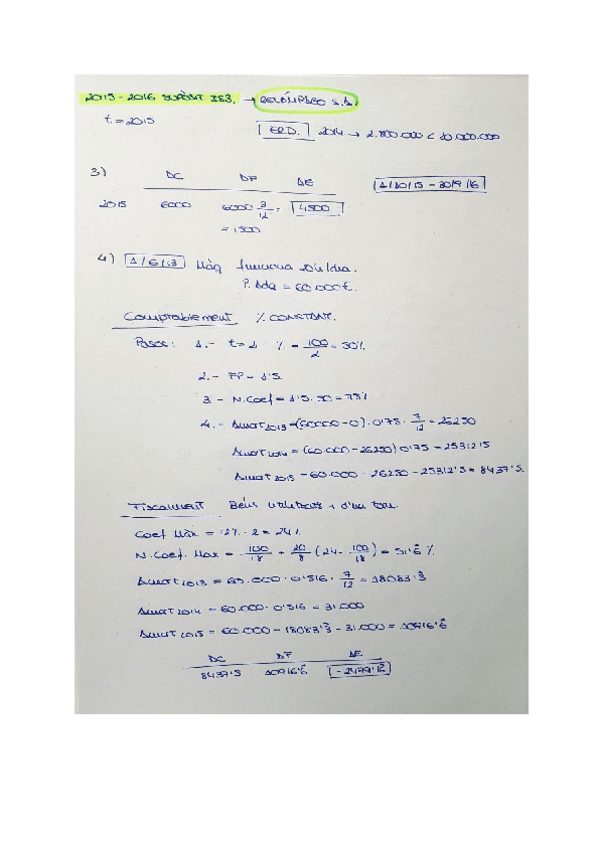 2015 - 2016 SUPÒSIT IS3. → RELÁMPAGO S.A.
t = 2015
ERD. 2014 → 2.800.000 < 10.000.000
3)
DC DF ΔE 1/10/15 - 2019/16
2015 6000 6000 3/12 = 4500
= 1500
4) 1/6/13 Màq funciona
P. Adq = 60.000€.
Comptablement % CONSTANT.
Pasos: 1.- t = 2 % = 100/2 = 50%
2.- FP = 1'5
3 - N. Coef = 1'5 · 50 = 75%
4.- Amort 2013 = (60000 - 0) · 0'75 · 7/12 = 26250
Amort 2014 = (60.000 - 26250) 0'75 = 25312'5
Amort 2015 = 60.000 - 26250 - 25312'5 = 8437'5.
Fiscalment Béns utilitzats + d'un torn.
Coef Màx = 12% · 2 = 24%
N. Coef. Max = 100/18 + 20/8 (24 - 100/18) = 51'6 %
Amort 2013 = 60.000 · 0'516 · 7/12 = 18083'3
Amort 2014 = 60.000 · 0'516 = 31.000
Amort 2015 = 60.000 - 18083'3 - 31.000 = 10916'6
DC DF ΔE
8437'5 10916'6 - 2479'16